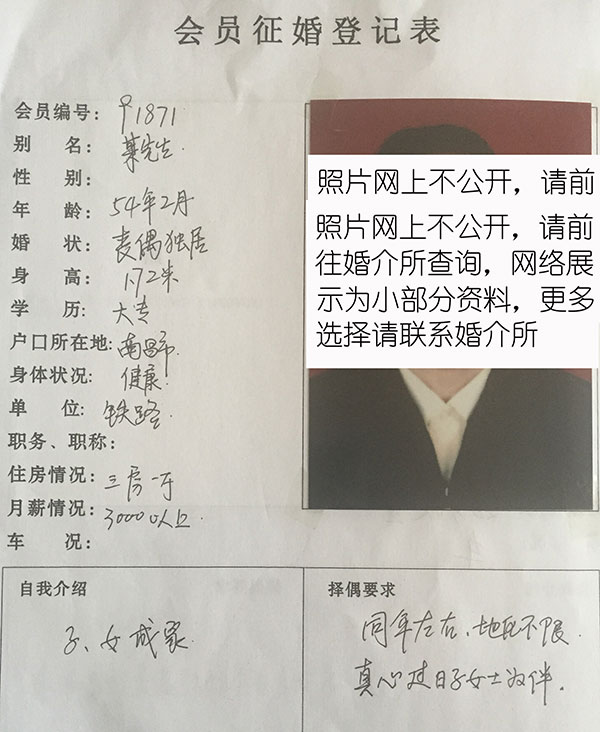 会员征婚登记表
会员编号: ♀1871
别 名: 葉先生
性 别:
年 龄: 54年2月
婚 状: 丧偶独居
身 高: 1.72米
学 历: 大专
户口所在地: 南昌市
身体状况: 健康
单 位: 铁路
职务、职称:
住房情况: 三房一厅
月薪情况: 3000以上
车 况:
照片网上不公开，请前
照片网上不公开，请前
往婚介所查询，网络展
示为小部分资料，更多
选择请联系婚介所
自我介绍
子、女成家.
择偶要求
同年左右、地区不限
真心过日子女士为伴.